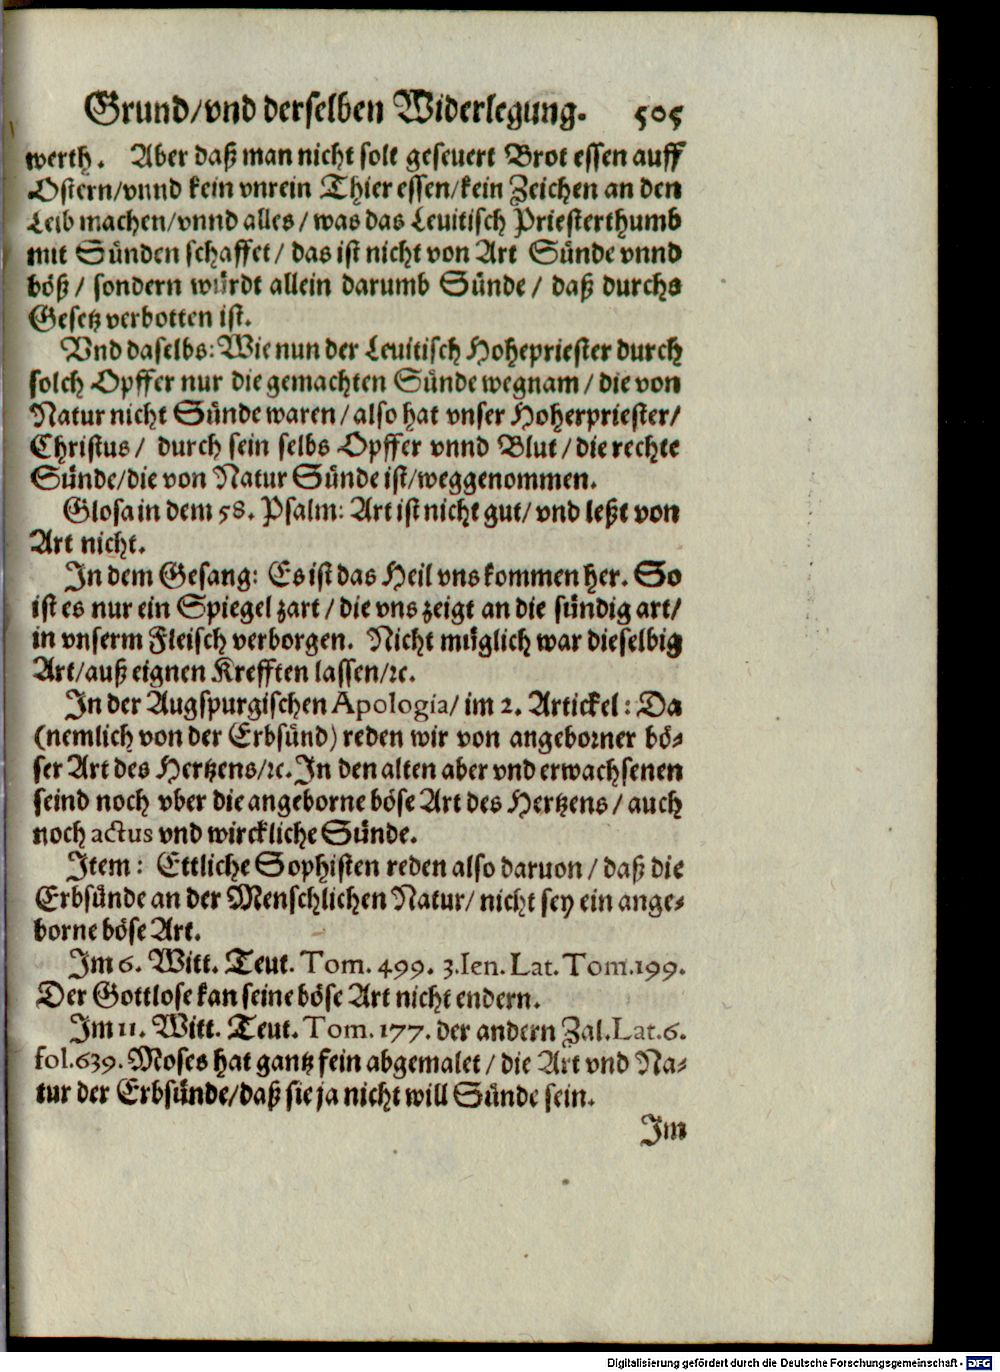 Grund/vnd derselben Widerlegung. 505
werth. Aber daß man nicht solt geseuert Brot essen auff
Ostern/vnnd kein vnrein Thier essen/kein Zeichen an den
Leib machen/vnnd alles/was das Leuitisch Priesterthumb
mit Sünden schaffet/das ist nicht von Art Sünde vnnd
böß/sondern würdt allein darumb Sünde/daß durchs
Gesetz verbotten ist.
Vnd daselbs: Wie nun der Leuitisch Hohepriester durch
solch Opffer nur die gemachten Sünde wegnam/die von
Natur nicht Sünde waren/also hat vnser Hoherpriester/
Christus/durch sein selbs Opffer vnnd Blut/die rechte
Sünde/die von Natur Sünde ist/weggenommen.
Glosa in dem 58. Psalm: Art ist nicht gut/vnd leßt von
Art nicht.
In dem Gesang: Es ist das Heil vns kommen her. So
ist es nur ein Spiegel zart/die vns zeigt an die sündig art/
in vnserm Fleisch verborgen. Nicht müglich war dieselbig
Art/auß eignen Krefften lassen/ꝛc.
In der Augspurgischen Apologia/im 2. Artickel: Da
(nemlich von der Erbsünd) reden wir von angeborner bö-
ser Art des Hertzens/ꝛc. In den alten aber vnd erwachsenen
seind noch vber die angeborne böse Art des Hertzens/auch
noch actus vnd wirckliche Sünde.
Item: Ettliche Sophisten reden also daruon/daß die
Erbsünde an der Menschlichen Natur/nicht sey ein ange-
borne böse Art.
Im 6. Witt. Teut. Tom. 499. 3. Ien. Lat. Tom. 199.
Der Gottlose kan seine böse Art nicht endern.
Im 11. Witt. Teut. Tom. 177. der andern Zal. Lat. 6.
fol. 639. Moses hat gantz fein abgemalet/die Art vnd Na-
tur der Erbsünde/daß sie ja nicht will Sünde sein.
Im
Digitalisierung gefördert durch die Deutsche Forschungsgemeinschaft - DFG